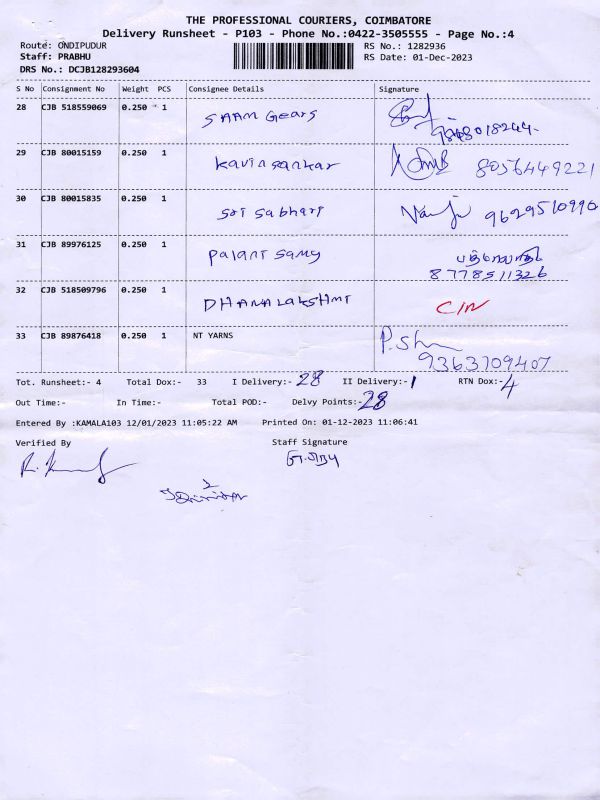 THE PROFESSIONAL COURIERS, COIMBATORE
Delivery Runsheet - P103 - Phone No.:0422-3505555 - Page No.:4
Route: ONDIPUDUR RS No.: 1282936
Staff: PRABHU RS Date: 01-Dec-2023
DRS No.: DCJB128293604
S No Consignment No Weight PCS Consignee Details Signature
28 CJB 518559069 0.250 1 SAAM Gears
29 CJB 80015159 0.250 1 kavinsankar 8056449221
30 CJB 80015835 0.250 1 Sri Sabhari 9629510990
31 CJB 89976125 0.250 1 Palani Samy
8778511326
32 CJB 518509796 0.250 1 DHANALAKSHMI
33 CJB 89876418 0.250 1 NT YARNS
9363709407
Tot. Runsheet:- 4 Total Dox:- 33 I Delivery:- 28 II Delivery:- 1 RTN Dox:- 4
Out Time:- In Time:- Total POD:- Delvy Points:- 28
Entered By :KAMALA103 12/01/2023 11:05:22 AM Printed On: 01-12-2023 11:06:41
Verified By Staff Signature